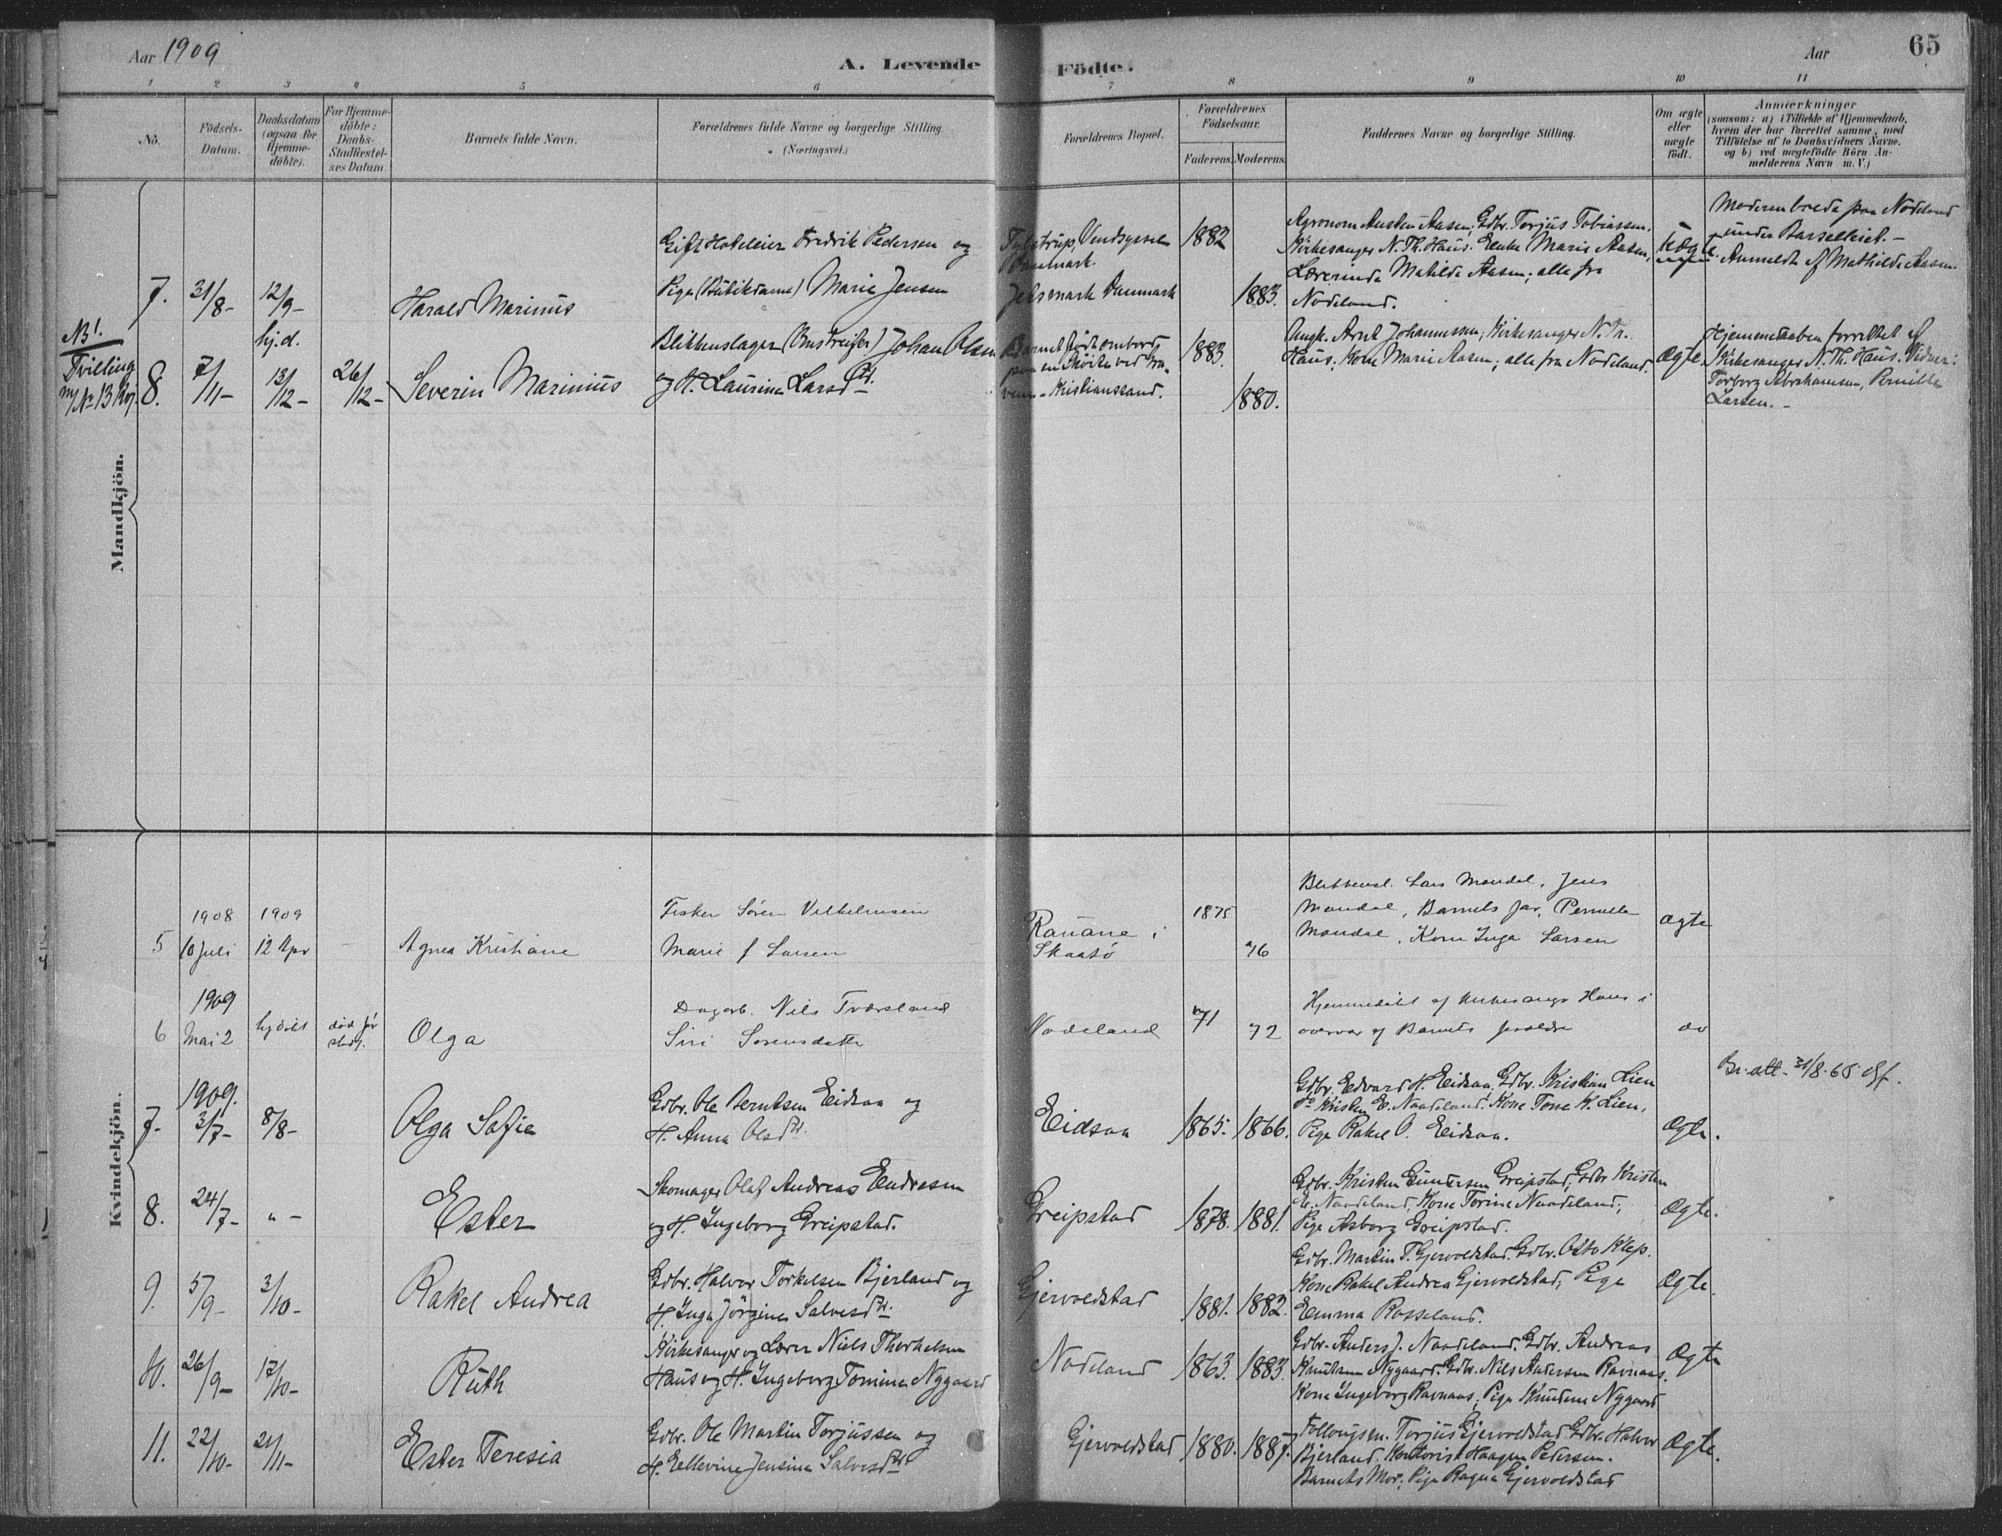 Aar 1909
A. Levende Födte.
Aar
65
1 2 3 4 5 6 7 8 9 10 11
No.
Födsels-Datum.
Daabsdatum (ogsaa for Hjemme-döbte).
For Hjemme-döbte: Daabs-Stadfæstel-ses Datum
Barnets fulde Navn.
Forældrenes fulde Navne og borgerlige Stilling. (Næringsvei.)
Forældrenes Bopæl.
Forældrenes Födselsaar.
Faderens. Moderens.
Faddernes Navne og borgerlige Stilling.
Om ægte eller uægte födt.
Anmærkninger
(saasom: a) i Tilfælde af Hjemmedaab, hvem der har forrettet samme, med Tilföielse af to Daabsvidners Navne. og b) ved uægtefödte Börn An-melderens Navn m. V.)
Mandkjön.
7. 31/8- 12/9- Harald Marinius
Gift Hoteleier Fredrik Pedersen og
Pige (Butikdame) Marie Jensen
Tylstrup, Vendsyssel
Danmark.
Jetsmark Danmark
1882
1883.
Agronom Austen Aasen, Gdbr. Torjus Tobiassen.
Kirkesanger N. Th. Haus. Enke Marie Aasen,
Lærerinde Matilde Aasen; alle fra
Nodeland.
Uægte
Moderen boede paa Nodeland
under Barselleiet. -
Anmeldt af Mathilde Aasen
NB!
Tvilling
m/ No 13 Kvj.
8. 7/11- hj.d. 13/12- 26/12- Severin Marinius
Blikkenslager (Omstreifer) Johan Olsen
og H. Laurine Larsdtr.
Barnet født ombord
paa en Skøite ved
Kristianssand.
1883.
1880.
Ungk. Arnt Johannessen, Kirkesanger N. Th.
Haus. Kone Marie Aasen, alle fra Nodeland.
Ægte
Hjemmedaaben forrettet af
Kirkesanger N. Th. Haus. Vidner:
Torborg Abrahamsen, Pernille
Larsen. -
Kvindekjön.
5 1908 10 Juli 1909 12 Apr - Agnea Kristiane
Fisker Sören Vilhelmsen
Marie f Larsen
Rauane i
Skaatö
1875
76
Blikkensl. Lars Mandal, Jens
Mandal, Barnets far, Pernille
Mandal, Kone Inga Larsen
ægte
6 1909 Mai 2 hjdöbt död för stadf. Olga
Dagarb. Nils Tværsland
Siri Sorensdatter
Nodeland
71
72
Hjemmedöbt af Kirkesanger Haus i
overvær af Barnets forældre
do
7- 1909. 3/7- 8/8- Olga Sofie
Gdbr. Ole Berntsen Eidsaa og
H. Anna Olsdtr.
Eidsaa
1865. 1866.
Gdbr. Edvard H. Eidsaa, Gdbr. Kristian Lien
do Kristen E. Naadeland, Kone Tone K. Lien,
Pige Rakel O. Eidsaa.
Ægte.
Br. att. 31/8-65
8. 24/7- " - Ester
Skomager Olaf Andreas Endresen
og H. Ingeborg Greipstad.
Greipstad
1878. 1881.
Gdbr. Kristen Gundersen Greipstad, Gdbr Kristen
E. Naadeland, Kone Torine Naadeland,
Pige Asborg Greipstad.
Ægte.
9. 5/9- 3/10- Rakel Andrea
Gdbr. Halvor Torkelsen Bjerland og
H. Inga Jörgine Salvesdtr.
Gjervoldstad
1881. 1882.
Gdbr. Martin T. Gjervoldstad. Gdbr. Otto Klep.
Kone Rakel Andrea Gjervoldstad, Pige
Emma Rosseland.
Ægte.
10. 26/9- 17/10- Ruth
Kirkesanger og Lærer Niels Thorkelsen
Haus og H. Ingeborg Tomine Nygaard
Nodeland
1863. 1883.
Gdbr. Anders J. Naadeland. Gdbr. Andreas
Knudsen Nygaard. Gdbr. Nils Andersen Ravnaas.
Kone Ingeborg Ravnaas, Pige Knudine Nygaard
Ægte
11. 22/10- 21/11- Ester Teresia
Gdbr. Ole Martin Torjussen og
H. Ellevine Jensine Salvesdtr
Gjervoldstad
1880. 1887.
Torjus Gjervoldstad Gdbr. Halvor
Bjerland. Kontorist Haagen Pedersen.
Barnets Mor, Pige Ragna Gjervoldstad
Ægte.